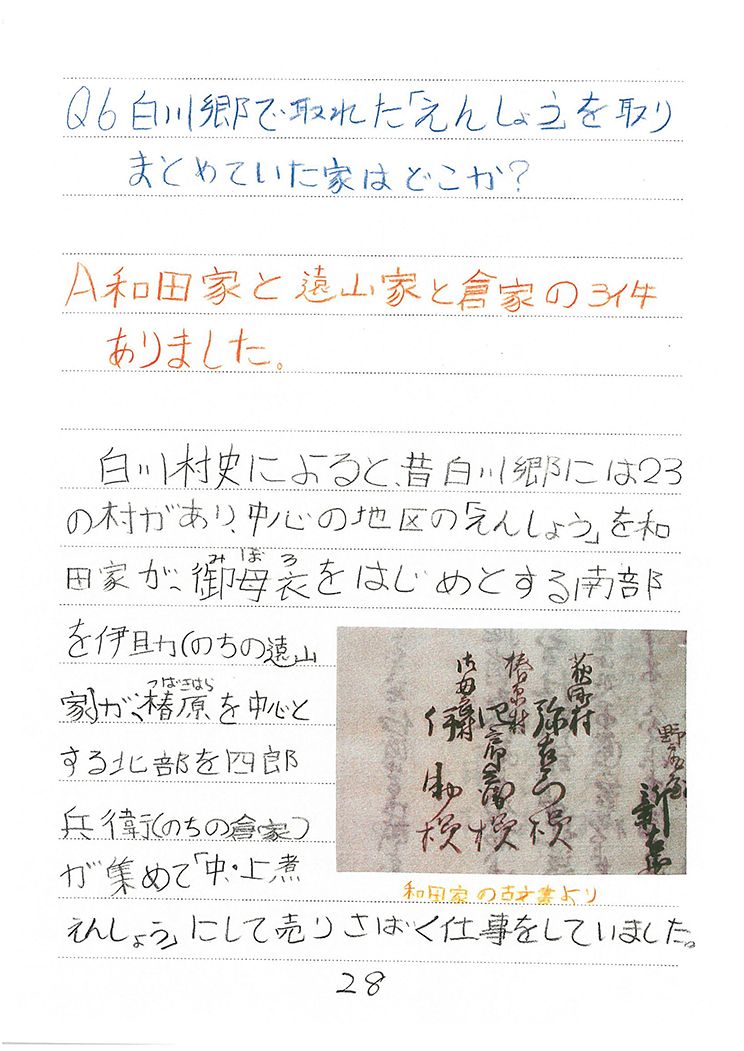 Q6 白川郷で取れた「えんしょう」を取り
まとめていた家はどこか？
A 和田家と遠山家と倉家の3件
ありました。
白川村史によると、昔白川郷には23
の村があり、中心の地区の「えんしょう」を和
田家が、御母衣をはじめとする南部
みぼろ
を伊助(のちの遠山
家)が、椿原を中心と
つばきはら
する北部を四郎
兵衛(のちの倉家)
が集めて「中・上煮
えんしょう」にして売りさばく仕事をしていました。
荻町村
弥右衛門様
椿原村
四郎兵衛様
御母衣村
伊助様
和田家の古文書より
28